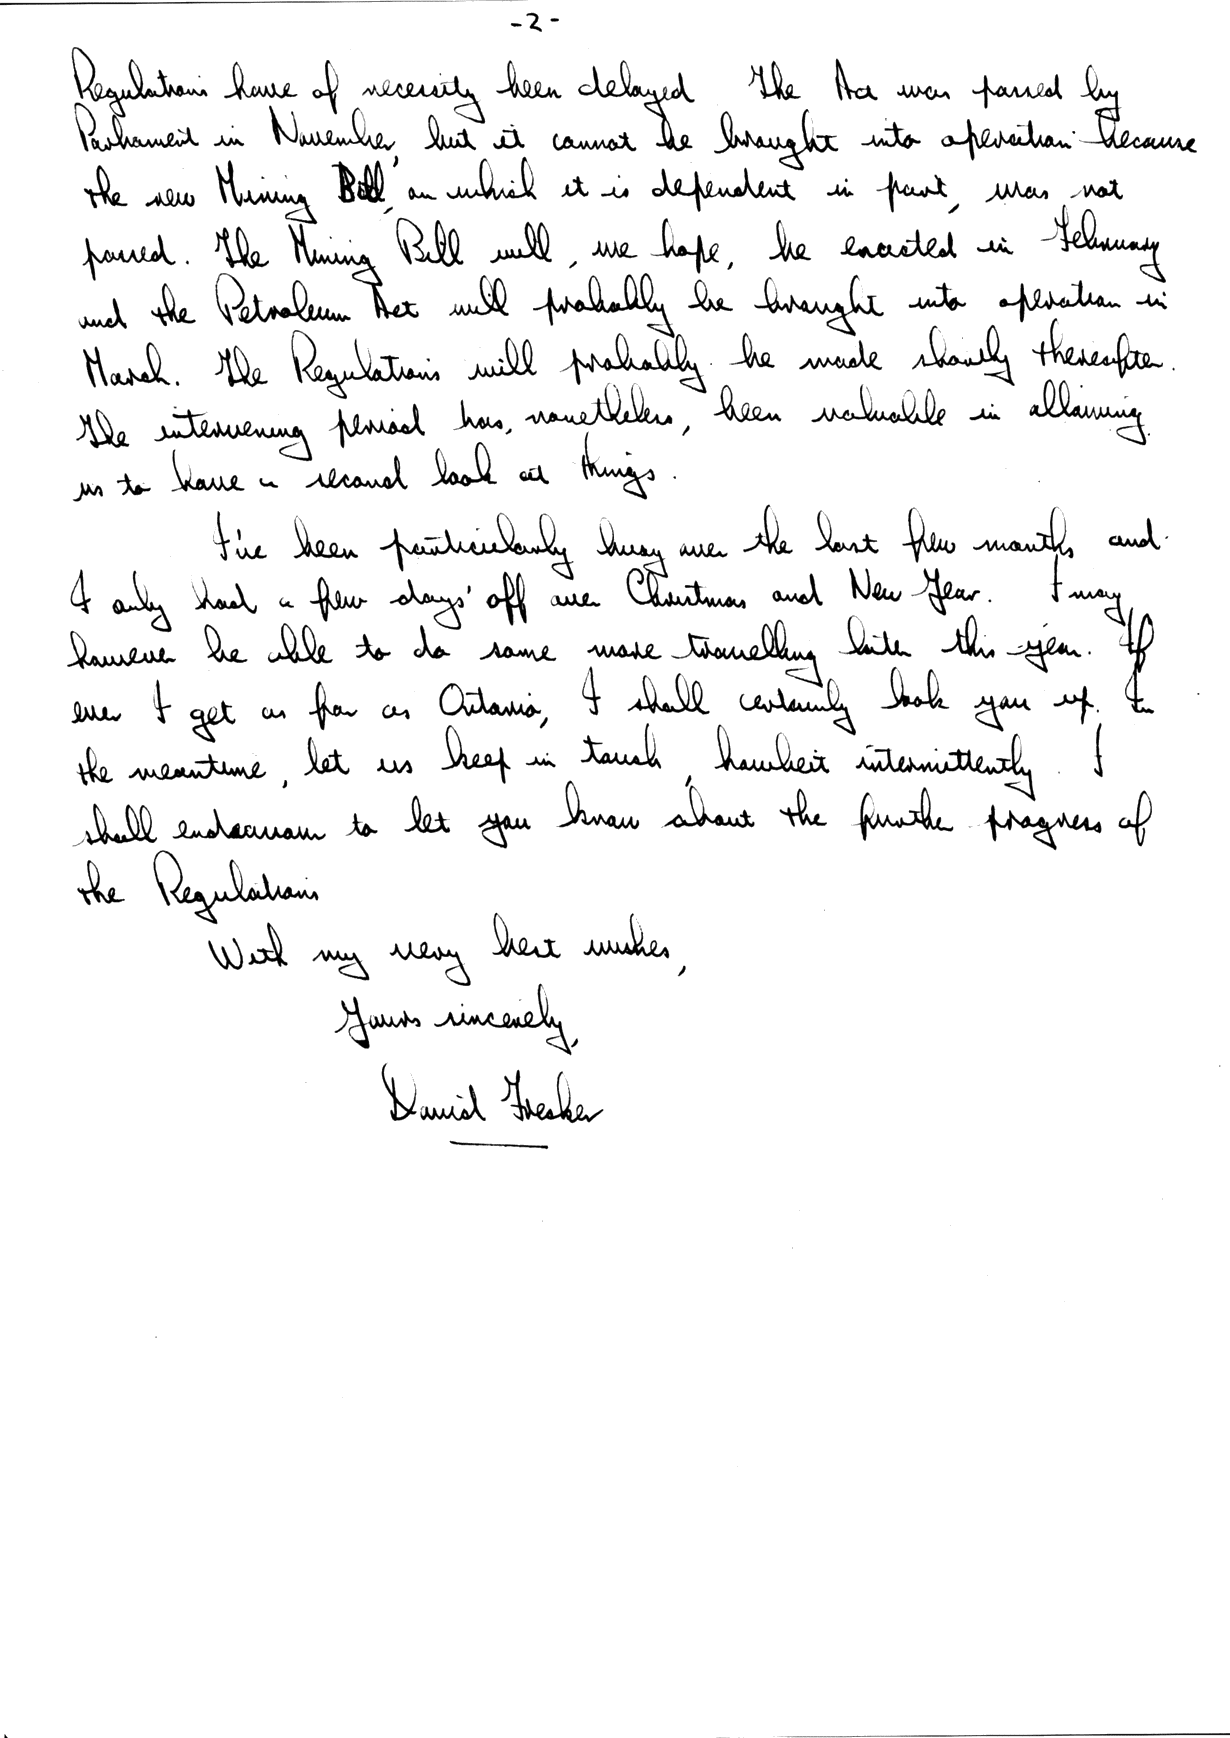 -2-
Regulations have of necessity been delayed The Act was passed by
Parliament in November, but it cannot be brought into operation because
the new Mining Bill, on which it is dependent in part, was not
passed. The Mining Bill will, we hope, be enacted in February
and the Petroleum Act will probably be brought into operation in
March. The Regulations will probably be made shortly thereafter.
The intervening period has, nonetheless, been valuable in allowing
us to have a second look at things.
I've been particularly busy over the last few months and
I only had a few days' off over Christmas and New Year. I may
however be able to do some more travelling later this year. If
ever I get as far as Ontario, I shall certainly look you up. In
the meantime, let us keep in touch, howbeit intermittently. I
shall endeavour to let you know about the further progress of
the Regulations
With my very best wishes,
Yours sincerely,
David